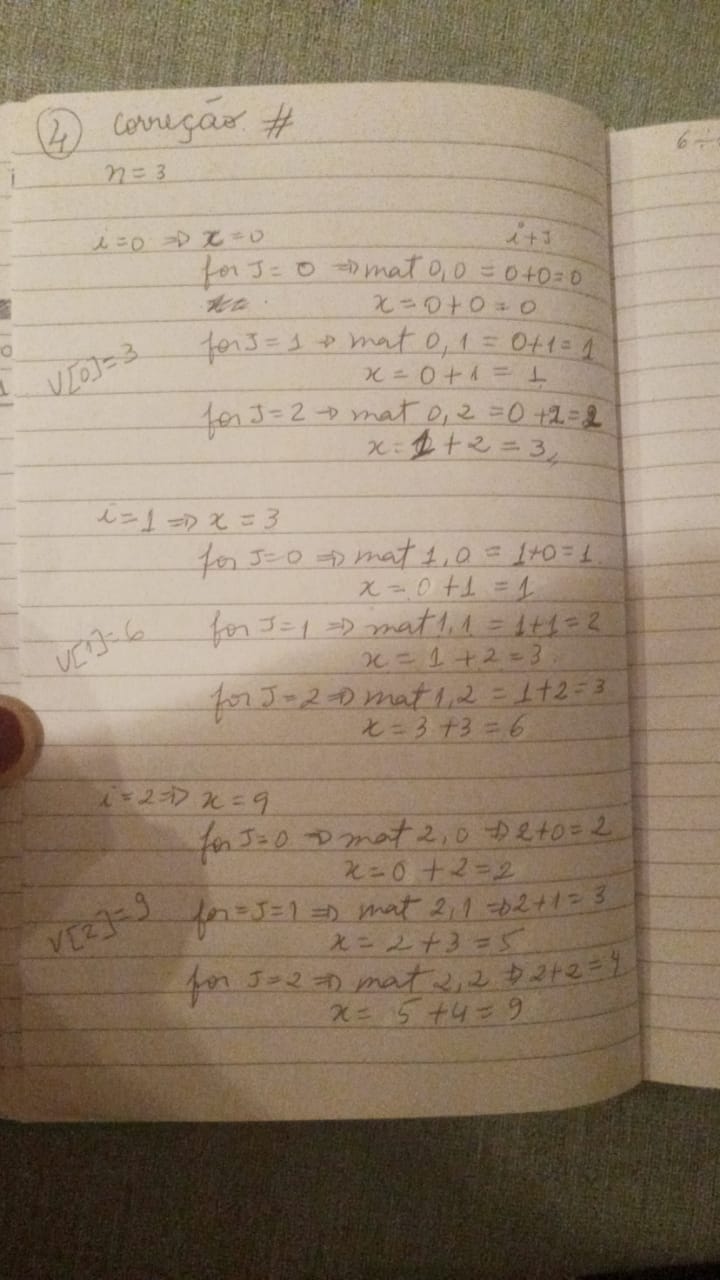 4 Correção #
n=3
i=0 ⇒ x=0 i+J
for J=0 ⇒ mat 0,0 = 0+0=0
x=0+0=0
V[0]=3 for J=1 ⇒ mat 0,1 = 0+1=1
x=0+1=1
for J=2 ⇒ mat 0,2 =0+2=2
x=1+2=3
i=1 ⇒ x=3
for J=0 ⇒ mat 1,0 = 1+0=1
x=0+1=1
V[1]=6 for J=1 ⇒ mat 1,1 = 1+1=2
x=1+2=3
for J=2 ⇒ mat 1,2 = 1+2=3
x=3+3=6
i=2 ⇒ x=9
for J=0 ⇒ mat 2,0 ⇒ 2+0=2
x=0+2=2
V[2]=9 for=J=1 ⇒ mat 2,1 ⇒ 2+1=3
x=2+3=5
for J=2 ⇒ mat 2,2 ⇒ 2+2=4
x=5+4=9